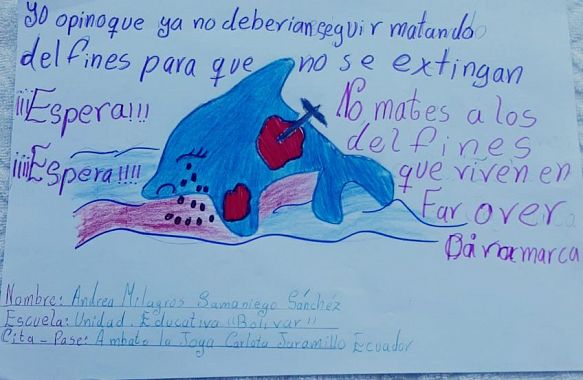 Yo opino que ya no deberian seguir matando
delfines para que no se extingan
¡¡¡Espera!!!
¡¡¡Espera!!!!
No mates a los
delfines
que viven en
Far over
Dinamarca
Nombre: Andrea Milagros Samaniego Sánchéz
Escuela: Unidad. Educativa "Bolivar"
Cita - Pase: Ambato la Joya Carlota Jaramillo Ecuador